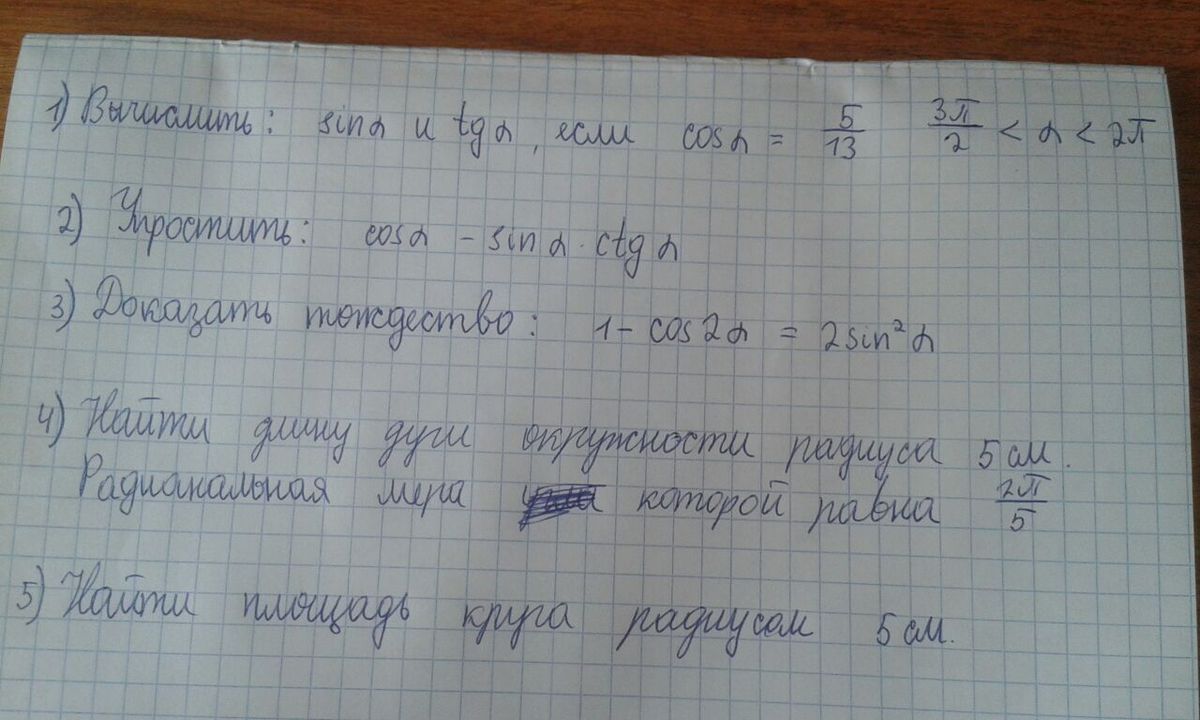 1) Вычислить: sinα и tgα, если cosα = 5/13 3π/2 < α < 2π
2) Упростить: cosα - sinα · ctgα
3) Доказать тождество: 1 - cos2α = 2sin²α
4) Найти длину дуги окружности радиуса 5 см.
Радианальная мера которой равна 2π/5
5) Найти площадь круга радиусом 5 см.